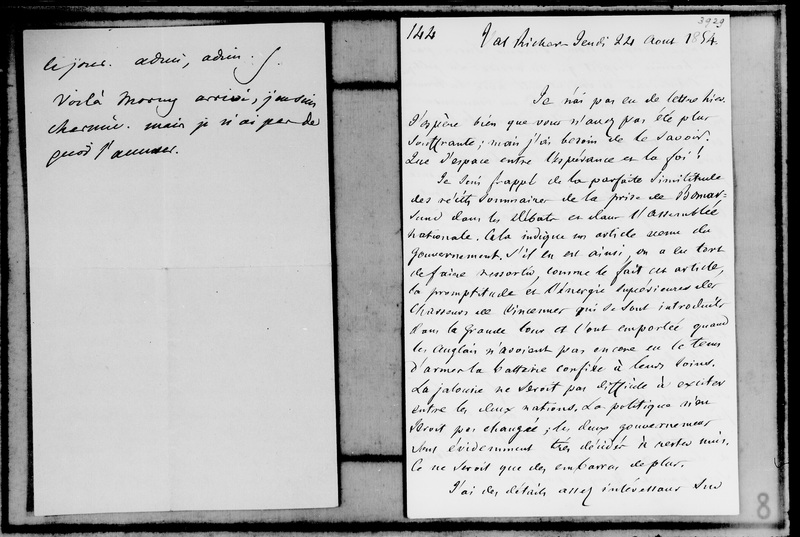 le jour. adieu, adieu.
Voilà Morny arrivé, j'en suis
charmée. mais je n'ai pas de
quoi l'amuser.
3929
144 Val Richer Jeudi 24 Aout 1854.
Je n'ai pas eu de lettre hier.
J'espère bien que vous n'avez pas été plus
souffrante ; mais j'ai besoin de le savoir.
Que d'espace entre l'espérance et la foi !
Je suis frappé de la parfaite similitude
des récits sommaires de la prise de Bomar-
sund dans les débats et dans l'assemblée
nationale. Cela indique un article venu du
gouvernement. S'il en est ainsi, on a eu tort
de faire ressortir, comme le fait cet article,
la promptitude et l'énergie supérieures des
chasseurs de Vincennes qui se sont introduits
dans la grande tour et l'ont emportée quand
les Anglais n'avoient pas encore eu le tems
d'armer la batterie confiée à leurs soins.
La jalousie ne seroit pas difficile à exciter
entre les deux nations. La politique n'en
seroit pas changée ; les deux gouvernemens
sont évidemment très décidés à rester unis.
Ce ne seroit que des embarras de plus.
J'ai des détails assez intéressans sur
8